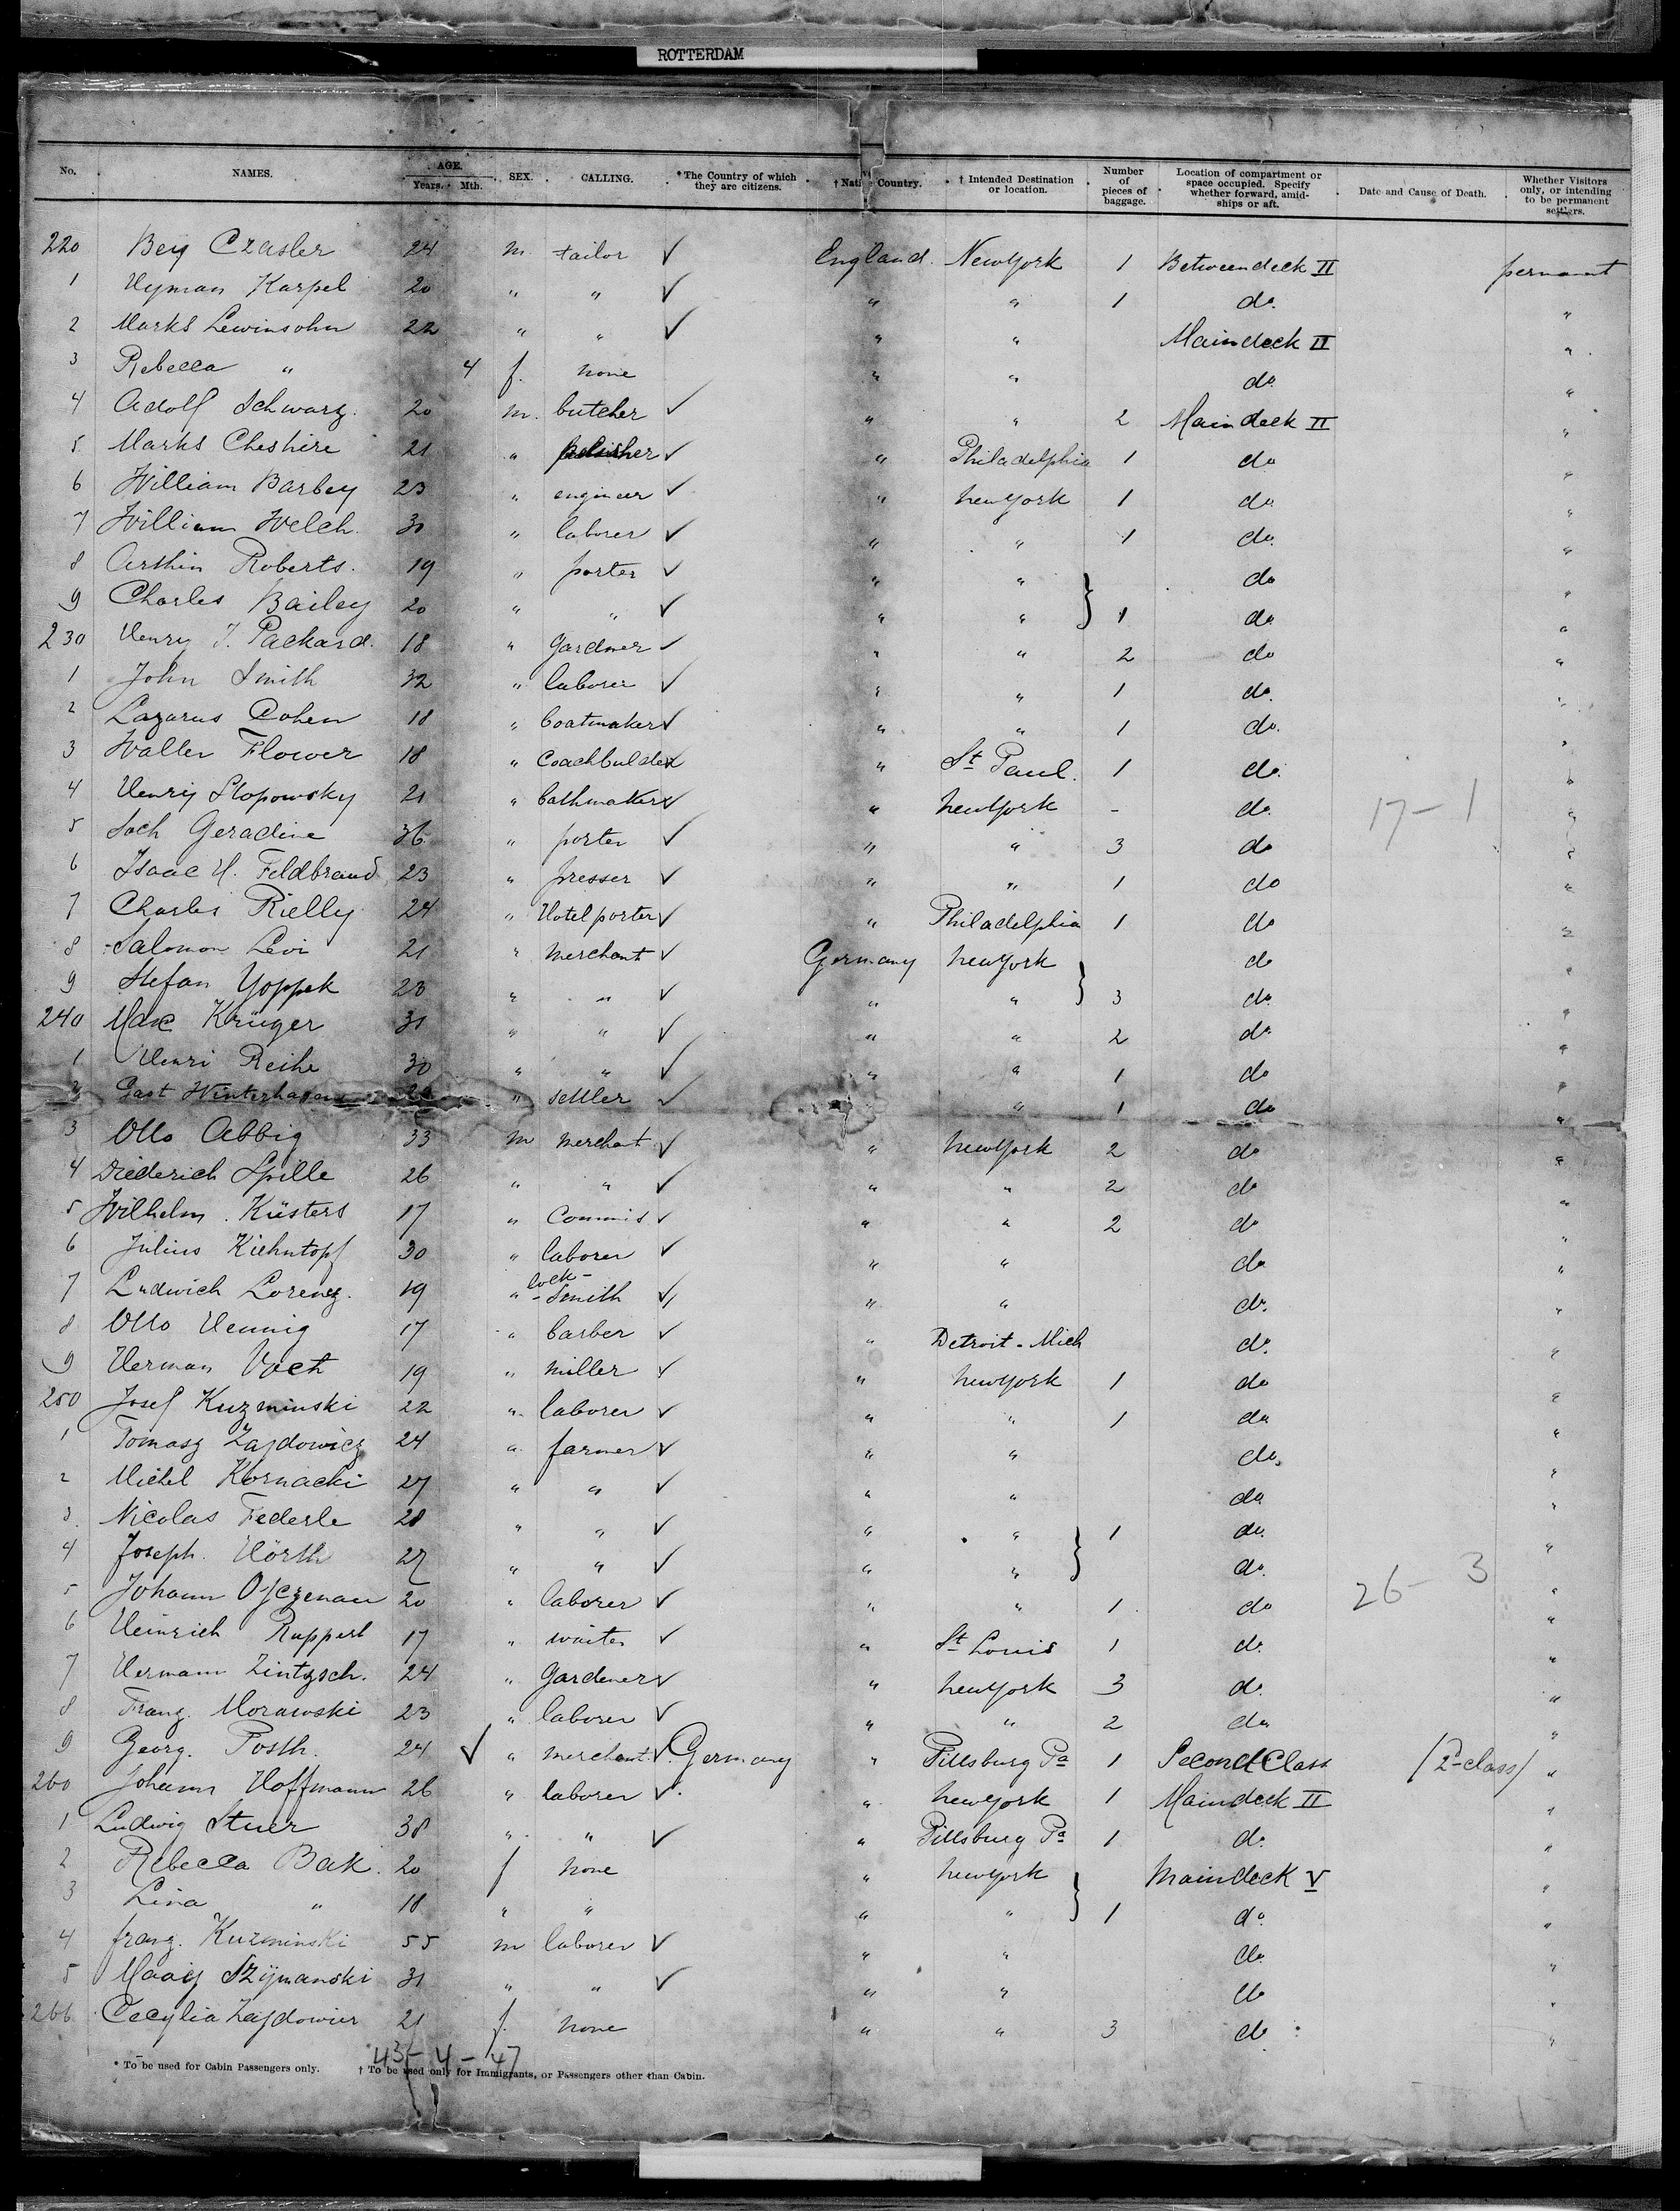 ROTTERDAM
No. NAMES. AGE. Years. Mth. SEX. CALLING. *The Country of which they are citizens. † Native Country. † Intended Destination or location. Number of pieces of baggage. Location of compartment or space occupied. Specify whether forward, amidships or aft. Date and Cause of Death. Whether Visitors only, or intending to be permanent settlers.
220 Bey Czasler 24 m. tailor ✓ England. Newyork 1 Betweendeck II permanent
1 Hyman Karpel 20 " " ✓ " " 1 do. "
2 Marks Lewinsohn 22 " " ✓ " " Maindeck II "
3 Rebecca " 4 f. none " " do. "
4 Adolf Schwarz. 20 m. butcher ✓ " " 2 Maindeck II "
5 Marks Cheshire 21 " polisher ✓ " Philadelphia 1 do "
6 William Barbey 23 " engineer ✓ " newyork 1 do "
7 William Welch. 30 " laborer ✓ " " 1 do. "
8 Arthin Roberts. 19 " porter ✓ " " } do "
9 Charles Bailey 20 " " ✓ " " } 1 do "
230 Henry J. Packard. 18 " gardner ✓ " " 2 do "
1 John Smith 32 " laborer ✓ " " 1 do. "
2 Lazarus Cohen 18 " Coatmaker ✓ " " 1 do. "
3 Walter Flower 18 " Coachbulder ✓ " St Paul. 1 do. "
4 Henry Stopowsky 21 " Cathmaker ✓ " newyork - do. 17-1 "
5 Soch Geradine 36 " porter ✓ " " 3 do "
6 Isaac H. Feldbrand 23 " presser ✓ " " 1 do "
7 Charles Rielly 24 " Hotelporter ✓ " Philadelphia 1 do "
8 Salomon Levi 21 " merchant ✓ Germany newyork } do "
9 Stefan Yoppek 23 " " ✓ " " } 3 do. "
240 Max Krüger 31 " " ✓ " " 2 do "
1 Henri Reihe 30 " " ✓ " " 1 do "
2 Gast Winterhagen " settler ✓ " " 1 do "
3 Otto Abbig 33 m merchant ✓ " newyork 2 do "
4 Diederich Spille 26 " " ✓ " " 2 do "
5 Wilhelm. Küsters 17 " Commis ✓ " " 2 do "
6 Julius Kiehntopf 30 " laborer ✓ " " do "
7 Ludwich Lorenz. 19 " lock-smith ✓ " " do. "
8 Otto Hennig 17 " barber ✓ " Detroit-Mich do. "
9 Herman Voct 19 " miller ✓ " newyork 1 do "
250 Josef Kuzminski 22 " laborer ✓ " " 1 do "
1 Tomasz Zajdowicz 24 " farmer ✓ " " do. "
2 Michel Kornacki 27 " " ✓ " " do "
3. Nicolas Federle 28 " " ✓ " " } 1 do. "
4 Joseph. Hörth 27 " " ✓ " " } do. "
5 Johann Ojczenau 20 " laborer ✓ " " 1 do 26-3 "
6 Heinrich Ruppert 17 " waiter ✓ " St Louis 1 do. "
7 Hermann Zintzsch. 24 " gardener ✓ " newyork 3 do. "
8 Franz. Morawski 23 " laborer ✓ " " 2 do "
9 Georg. Posth. 24 ✓ " merchant ✓ Germany " Pittsburg Pa 1 Second Class /2-class/ "
260 Johann Hoffmann 26 " laborer ✓ " newyork 1 Maindeck II "
1 Ludwig Stuer 38 " " ✓ " Pittsburg Pa 1 do. "
2 Rebecca Bak. 20 f none " newyork } Maindeck V "
3 Lina " 18 " " " " } 1 do. "
4 franz. Kuzminski 55 m laborer ✓ " " do. "
5 Maaiy Szijmanski 31 " " ✓ " " do "
266 Cecylia Zajdowier 21 f. none " " 3 do. "
43-4-47
* To be used for Cabin Passengers only. † To be used only for Immigrants, or Passengers other than Cabin.